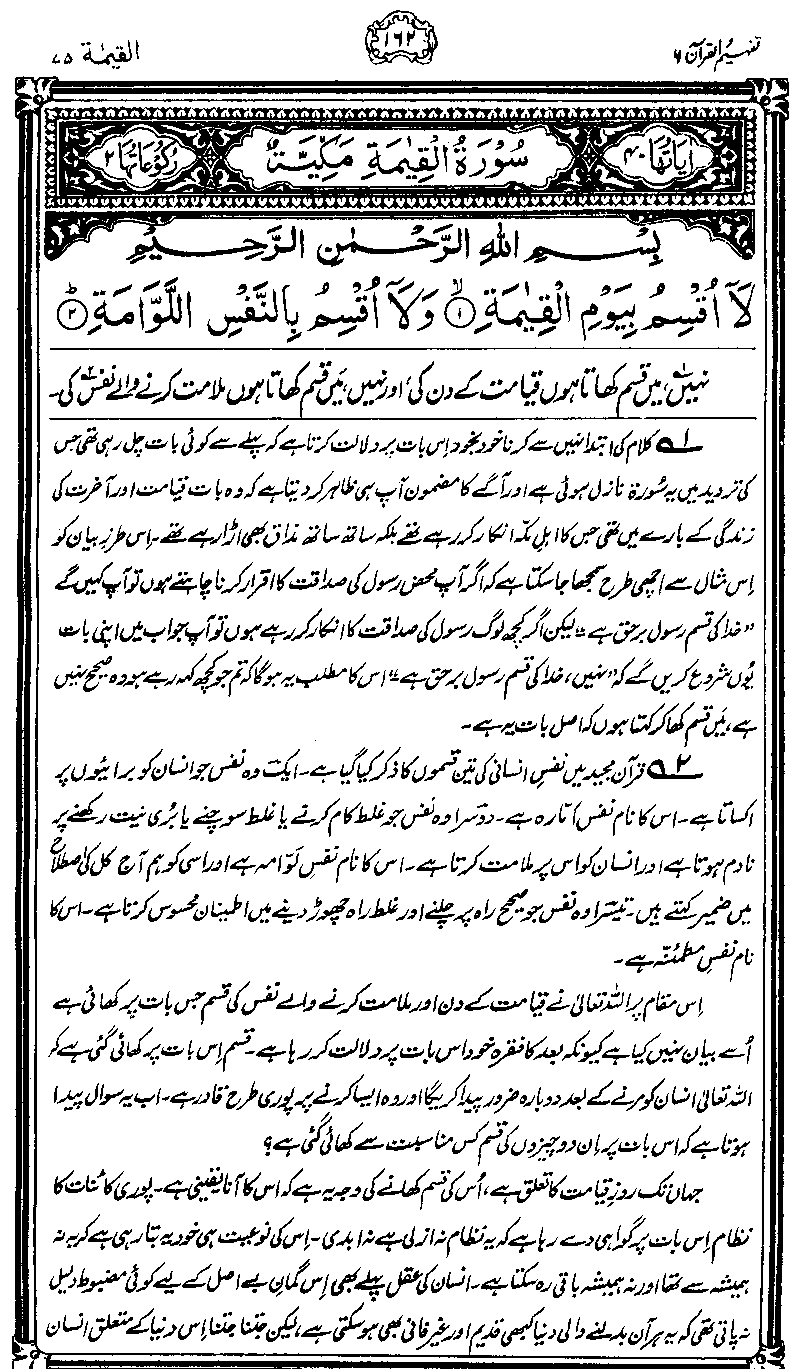 تفہیم القرآن ۶
۱۶۲
القیٰمۃ ۷۵
اٰیَاتُهَا ۴۰
سُوْرَةُ الْقِيٰمَةِ مَكِّيَّةٌ
رُكُوْعَاتُهَا ۲
بِسْمِ اللهِ الرَّحْمٰنِ الرَّحِيْمِ
لَاۤ اُقْسِمُ بِيَوْمِ الْقِيٰمَةِ ۙ﴿۱﴾ وَلَاۤ اُقْسِمُ بِالنَّفْسِ اللَّوَّامَةِ ؕ﴿۲﴾
نہیں۱، میں قسم کھاتا ہوں قیامت کے دن کی، اور نہیں، میں قسم کھاتا ہوں ملامت کرنے والے نفس۲ کی۔
۱؎ کلام کی ابتدا نہیں سے کرنا خود بخود اِس بات پر دلالت کرتا ہے کہ پہلے سے کوئی بات چل رہی تھی جس
کی تردید میں یہ سُورۃ نازل ہوئی ہے اور آگے کا مضمون آپ ہی ظاہر کر دیتا ہے کہ وہ بات قیامت اور آخرت کی
زندگی کے بارے میں تھی جس کا اہلِ مکّہ انکار کر رہے تھے بلکہ ساتھ ساتھ مذاق بھی اڑا رہے تھے۔ اِس طرزِ بیان کو
اِس مثال سے اچھی طرح سمجھا جا سکتا ہے کہ اگر آپ محض رسول کی صداقت کا اقرار کرنا چاہتے ہوں تو آپ کہیں گے
”خدا کی قسم رسول برحق ہے“ لیکن اگر کچھ لوگ رسول کی صداقت کا انکار کر رہے ہوں تو آپ جواب میں اپنی بات
یُوں شروع کریں گے کہ ”نہیں، خدا کی قسم رسول برحق ہے“ اس کا مطلب یہ ہوگا کہ تم جو کچھ کہہ رہے ہو وہ صحیح نہیں
ہے، میں قسم کھا کر کہتا ہوں کہ اصل بات یہ ہے۔
۲؎ قرآن مجید میں نفسِ انسانی کی تین قسموں کا ذکر کیا گیا ہے۔ ایک وہ نفس جو انسان کو برائیوں پر
اکساتا ہے۔ اس کا نام نفس امّارہ ہے۔ دوسرا وہ نفس جو غلط کام کرنے یا غلط سوچنے یا بُری نیت رکھنے پر
نادم ہوتا ہے اور انسان کو اس پر ملامت کرتا ہے۔ اس کا نام نفس لوّامہ ہے اور اسی کو ہم آج کل کی اصطلاح
میں ضمیر کہتے ہیں۔ تیسرا وہ نفس جو صحیح راہ پر چلنے اور غلط راہ چھوڑ دینے میں اطمینان محسوس کرتا ہے۔ اس کا
نام نفسِ مطمئنّہ ہے۔
اِس مقام پر اللہ تعالیٰ نے قیامت کے دن اور ملامت کرنے والے نفس کی قسم جس بات پر کھائی ہے
اُسے بیان نہیں کیا ہے کیونکہ بعد کا فقرہ خود اس بات پر دلالت کر رہا ہے۔ قسم اِس بات پر کھائی گئی ہے کہ
اللہ تعالیٰ انسان کو مرنے کے بعد دوبارہ ضرور پیدا کریگا اور وہ ایسا کرنے پر پوری طرح قادر ہے۔ اب یہ سوال پیدا
ہوتا ہے کہ اس بات پر اِن دو چیزوں کی قسم کس مناسبت سے کھائی گئی ہے؟
جہاں تک روزِ قیامت کا تعلق ہے، اُس کی قسم کھانے کی وجہ یہ ہے کہ اس کا آنا یقینی ہے۔ پوری کائنات کا
نظام اِس بات پر گواہی دے رہا ہے کہ یہ نظام نہ ازلی ہے نہ ابدی۔ اِس کی نوعیت ہی خود یہ بتا رہی ہے کہ یہ نہ
ہمیشہ سے تھا اور نہ ہمیشہ باقی رہ سکتا ہے۔ انسان کی عقل پہلے بھی اِس گمانِ بے اصل کے لیے کوئی مضبوط دلیل
نہ پاتی تھی کہ یہ ہر آن بدلنے والی دنیا کبھی قدیم اور غیر فانی بھی ہو سکتی ہے، لیکن جتنا جتنا اِس دنیا کے متعلق انسان